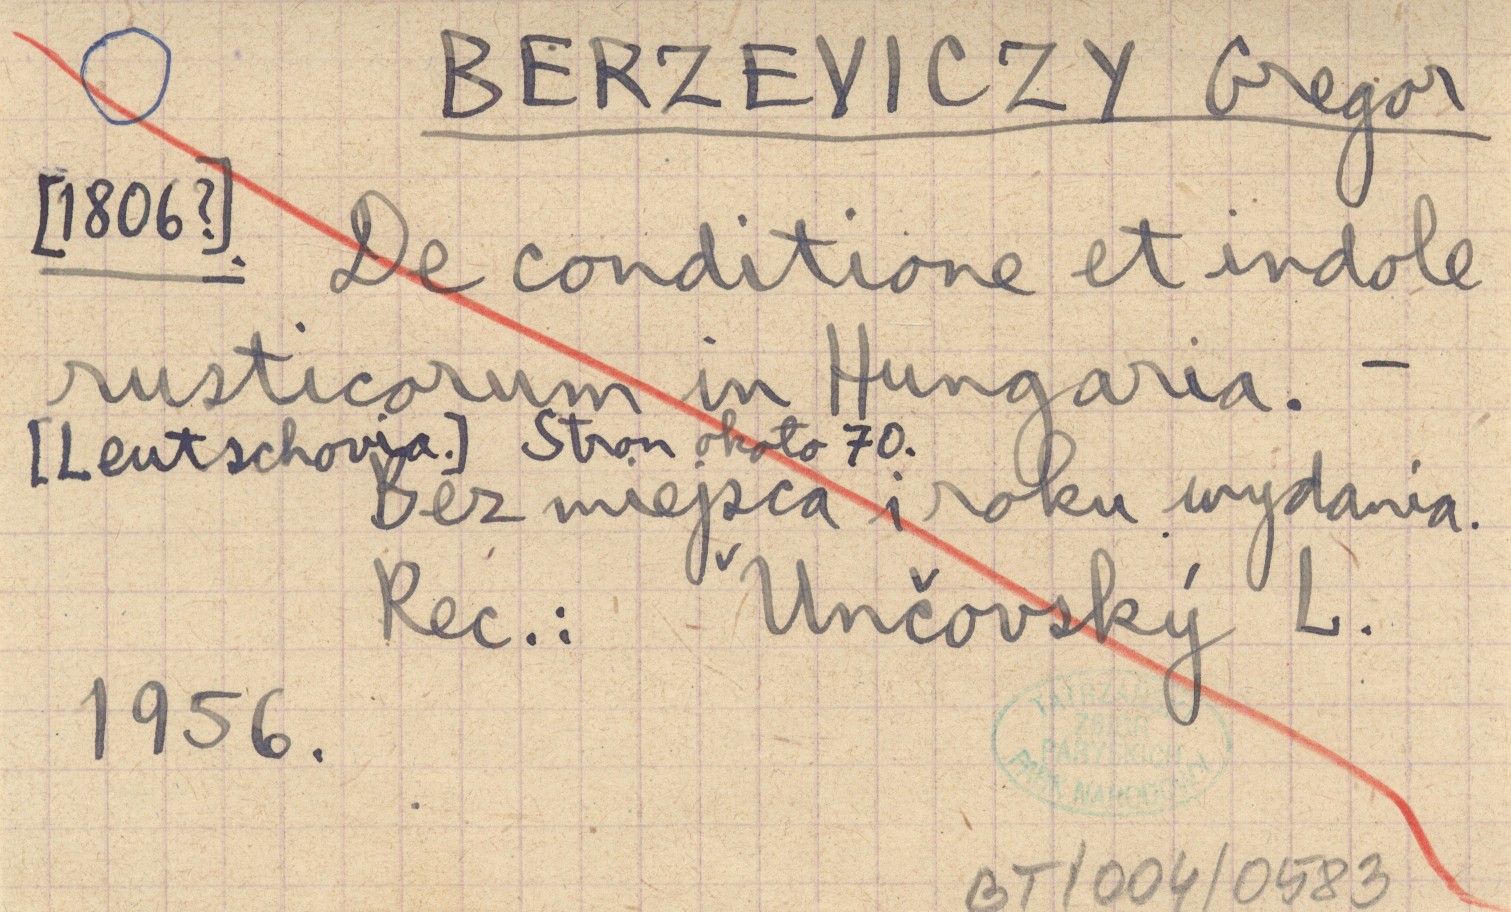 BERZEVICZY Gregor
[1806?]. De conditione et indole
rusticorum in Hungaria. –
[Leutschovia.] Stron około 70.
Bez miejsca i roku wydania.
Rec.: Unčovský L.
1956.
TATRZAŃSKI
ZBIÓR
PARYSKICH
PARK NARODOWY
BT/004/0583